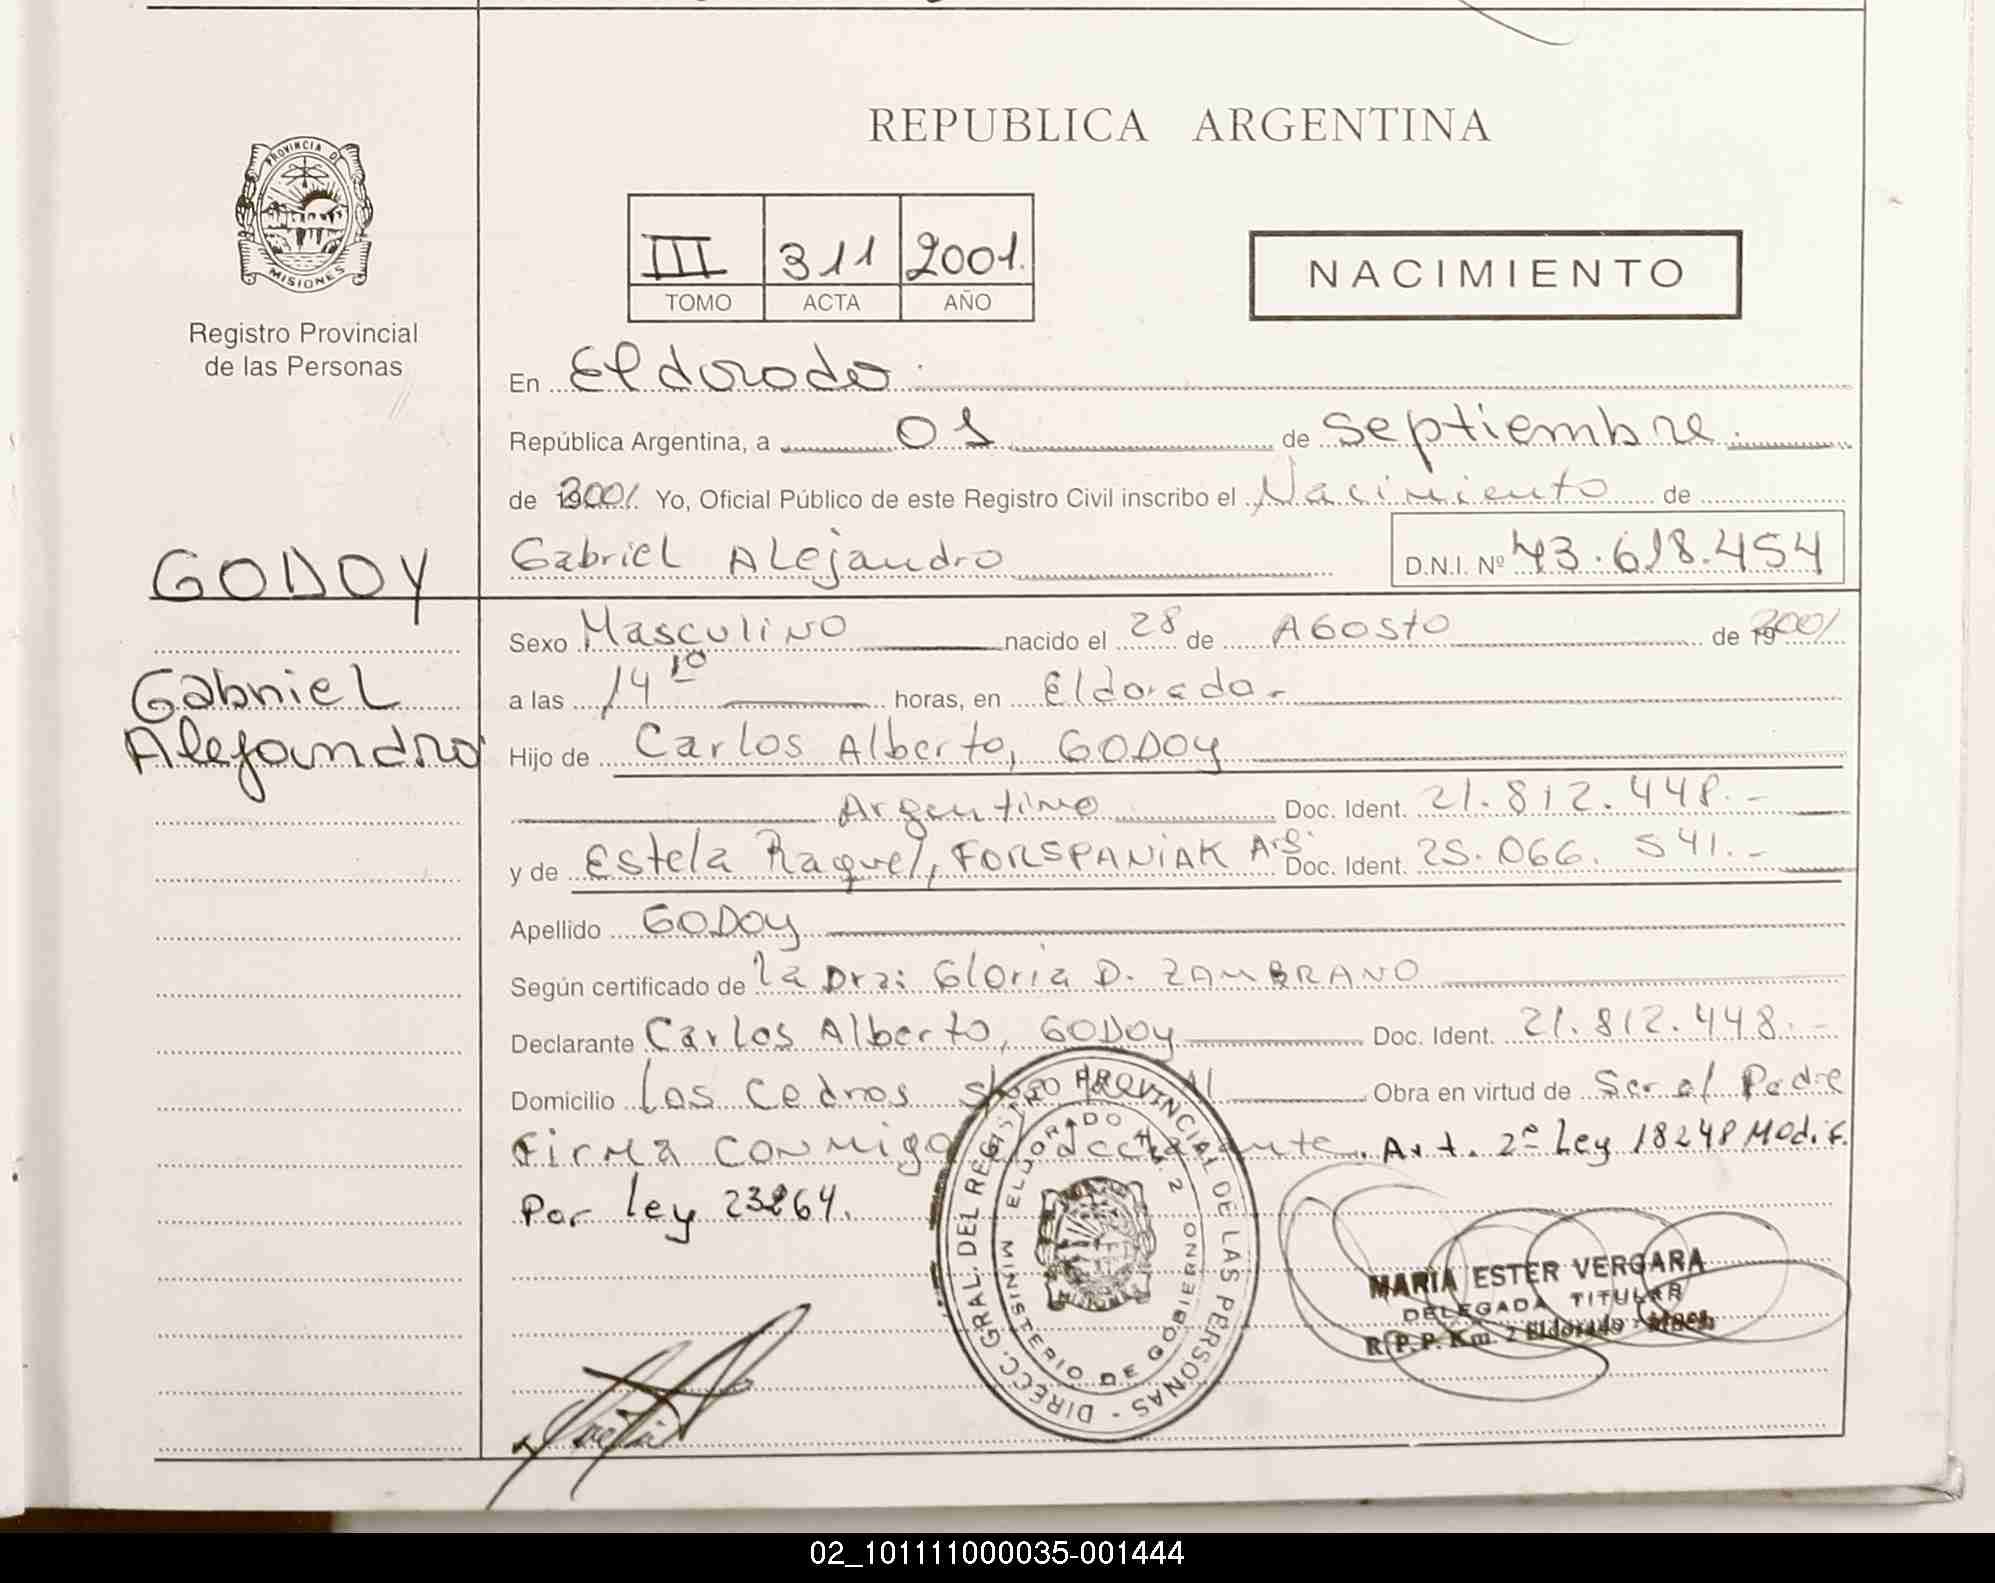 REPUBLICA ARGENTINA
PROVINCIA D MISIONES
Registro Provincial
de las Personas
III 311 2001.
TOMO ACTA AÑO
NACIMIENTO
En Eldorado
República Argentina, a 01 de Septiembre
de 2001 Yo, Oficial Público de este Registro Civil inscribo el Nacimiento de
Gabriel Alejandro D.N.I. Nº 43.618.454
GODOY
Gabriel
Alejandro
Sexo Masculino nacido el 28 de Agosto de 2001
a las 14 10 horas, en Eldorado.-
Hijo de Carlos Alberto, GODOY
Argentino Doc. Ident. 21.812.448.-
y de Estela Raquel, FORSPANIAK Arg. Doc. Ident. 25.066.541.-
Apellido GODOY
Según certificado de la Dra: Gloria D. ZAMBRANO
Declarante Carlos Alberto, GODOY Doc. Ident. 21.812.448.-
Domicilio los Cedros Obra en virtud de Ser el Padre
Firma conmigo declarante. Art. 2º Ley 18248 Modif.
Por ley 23264.
DIRECC. GRAL. DEL REGISTRO PROVINCIAL DE LAS PERSONAS -
MINISTERIO DE GOBIERNO
ELDORADO KM 2
MISIONES
MARIA ESTER VERGARA
DELEGADA TITULAR
R.P.P. Km. 2 Eldorado - Mnes.
02_101111000035-001444